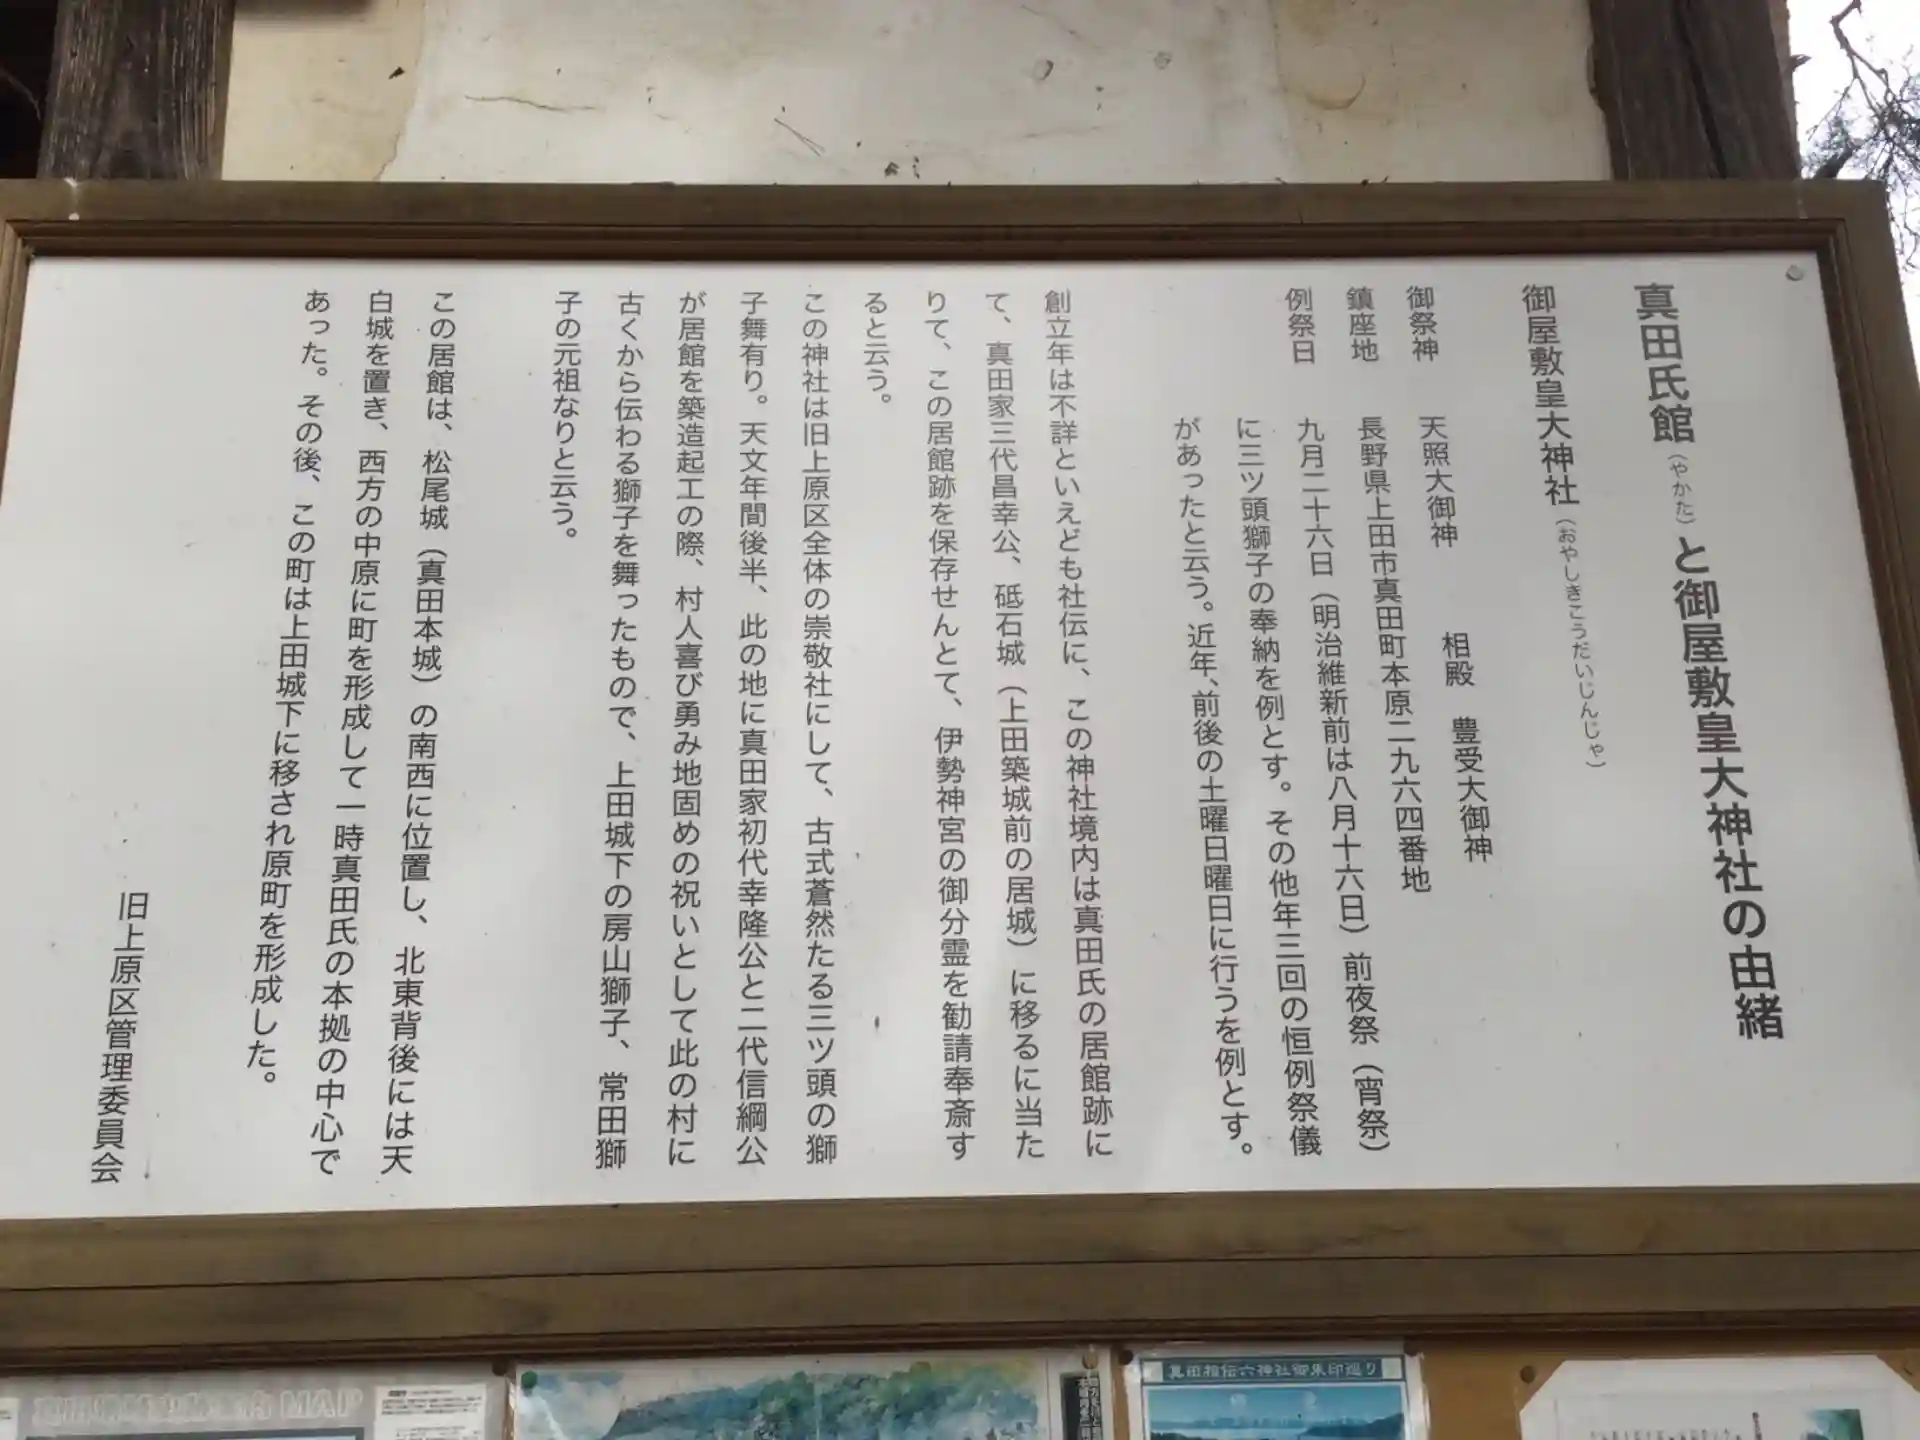 真田氏館（やかた）と御屋敷皇大神社の由緒
御屋敷皇大神社（おやしきこうだいじんじゃ）
御祭神　天照大御神　相殿　豊受大御神
鎮座地　長野県上田市真田町本原二九六四番地
例祭日　九月二十六日（明治維新前は八月十六日）前夜祭（宵祭）
に三ツ頭獅子の奉納を例とす。その他年三回の恒例祭儀
があったと云う。近年、前後の土曜日曜日に行うを例とす。
創立年は不詳といえども社伝に、この神社境内は真田氏の居館跡に
て、真田家三代昌幸公、砥石城（上田築城前の居城）に移るに当た
りて、この居館跡を保存せんとて、伊勢神宮の御分霊を勧請奉斎す
ると云う。
この神社は旧上原区全体の崇敬社にして、古式蒼然たる三ツ頭の獅
子舞有り。天文年間後半、此の地に真田家初代幸隆公と二代信綱公
が居館を築造起工の際、村人喜び勇み地固めの祝いとして此の村に
古くから伝わる獅子を舞ったもので、上田城下の房山獅子、常田獅
子の元祖なりと云う。
この居館は、松尾城（真田本城）の南西に位置し、北東背後には天
白城を置き、西方の中原に町を形成して一時真田氏の本拠の中心で
あった。その後、この町は上田城下に移され原町を形成した。
旧上原区管理委員会
MAP
真田相伝六神社御朱印巡り